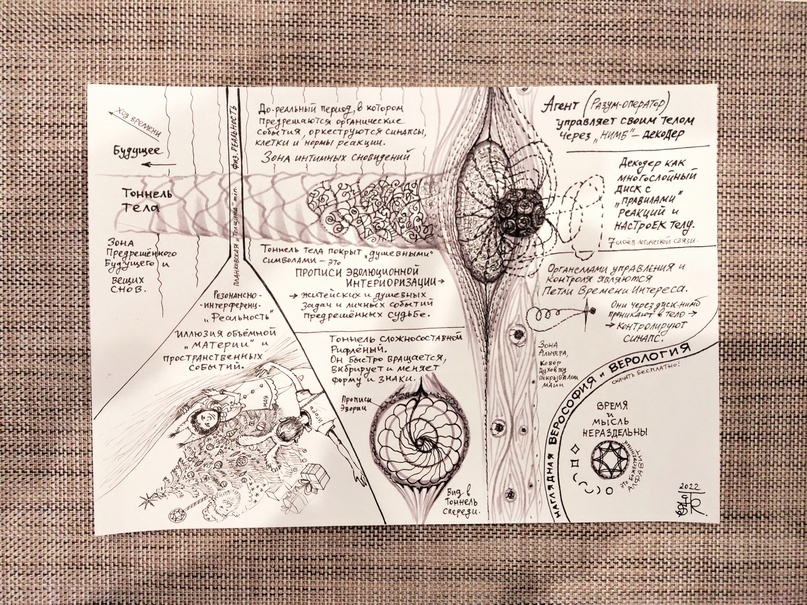 Ход времени
Будущее
Тоннель
Тела
Зона
Предрешённого
Будущего и
вещих
снов.
физ. РЕАЛЬНОСТЬ
До-реальный период, в котором
предрешаются органические
события, оркеструются синапсы,
клетки и нормы реакции.
Зона интимных сновидений
Тоннель тела покрыт „душевными"
символами — это
ПРОПИСИ ЭВОЛЮЦИОННОЙ
ИНТЕРИОРИЗАЦИИ
житейских и душевных
задач и личных событий
предрешённых судьбе.
Резонансно-
-интерференц.
„Реальность"
Иллюзия объёмной
„материи" и
пространственных
событий.
Тоннель сложносоставной
Рифлёный.
Он быстро вращается,
вибрирует и меняет
форму и знаки.
Прописи
Эвории
Вид в
тоннель
спереди.
Агент (Разум-оператор)
управляет своим телом
через „НИМБ" — декодер
Декодер как
многослойный
диск с
„правилами"
реакций и
настроек телу.
Органеллами управления и
контроля являются
Петли Времени Интереса.
Они через диск-нимб
проникают в тело →
→ контролируют
синапс.
Зона
НАГЛЯДНАЯ ВЕРОСОФИЯ и ВЕРОЛОГИЯ
бесплатно!
ВРЕМЯ
и
МЫСЛЬ
НЕРАЗДЕЛЬНЫ
АЛФАВИТ
2022